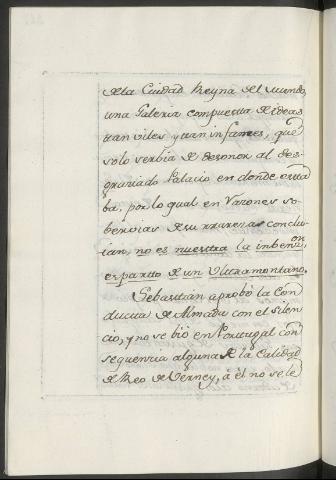 de la Ciudad Reyna del mundo
una Galeria compuesta de ideas
tan viles y tan infames, que
solo serbia de desonor al des-
graciado Palacio en donde esta
ba, por lo qual en Varones so
bervios de su conclu
ian, no es nuestra la inbencion,
es parto de un Ultramontano.
Sebastian aprobò la Con
ducta de Almada con el silen
cio, y no se bió en Portugal con
sequencia alguna de la Calidad
de Reo de Verney, à él no se le